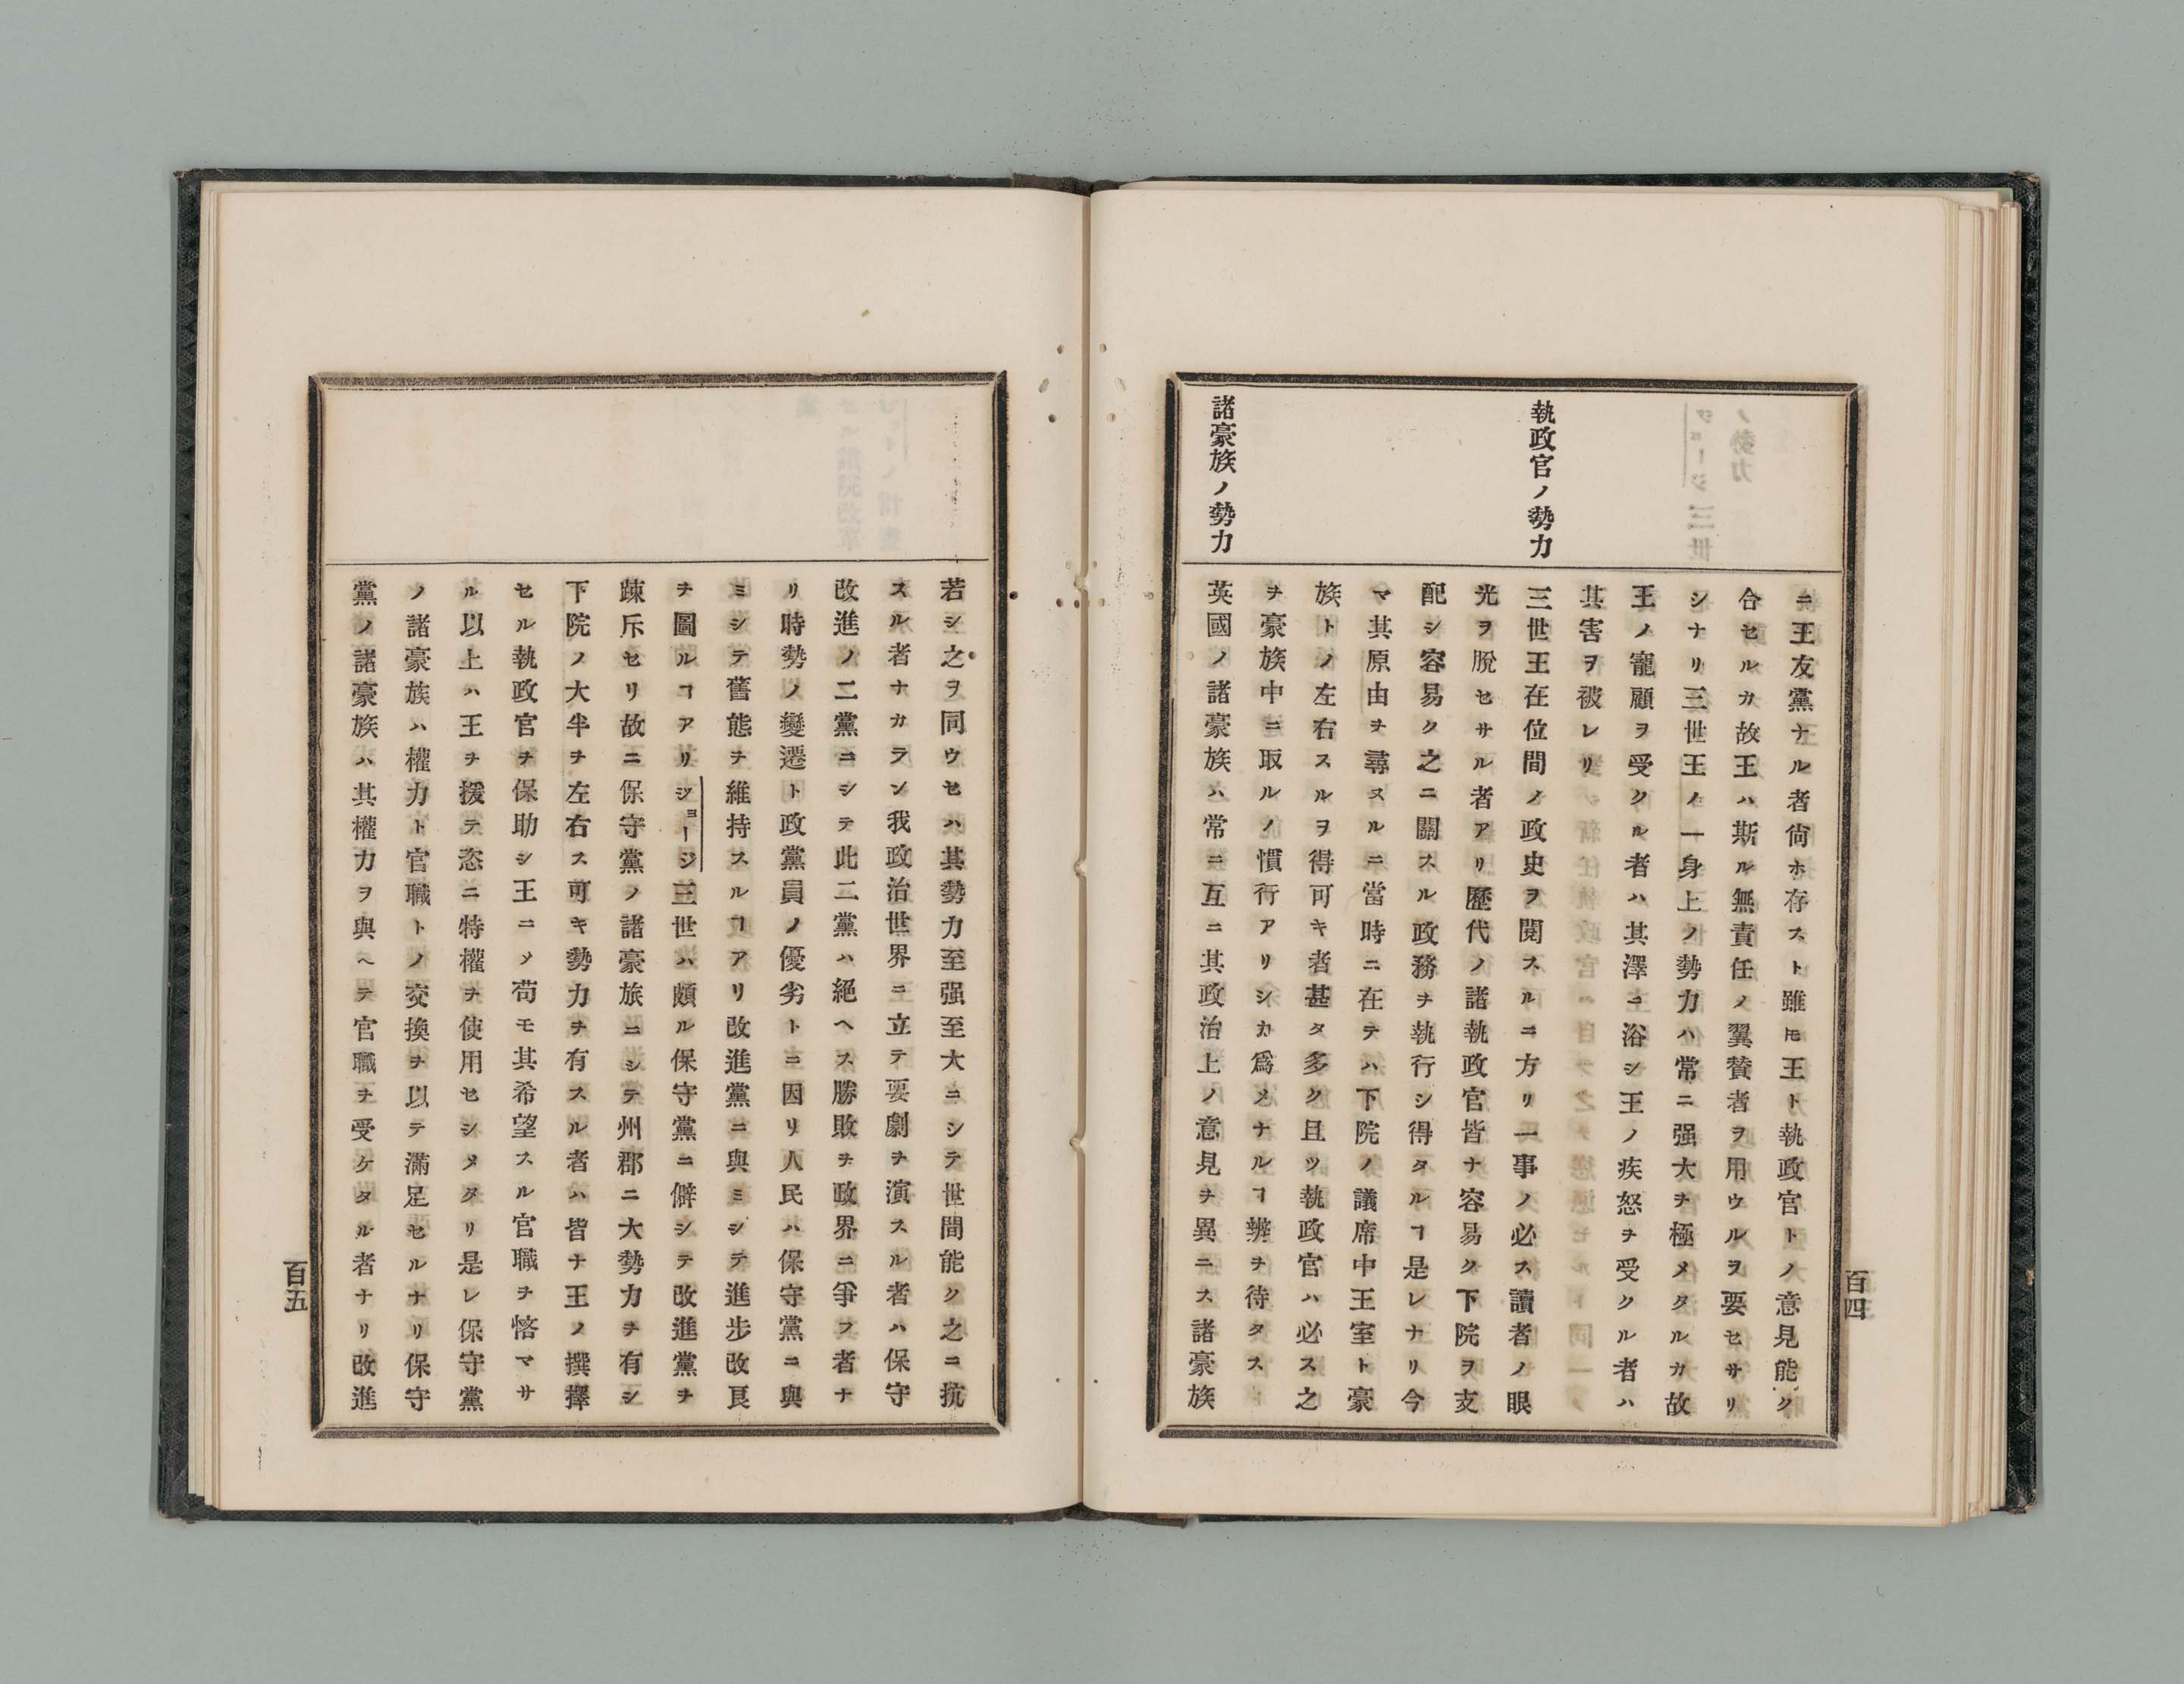 執政官ノ勢力
諸豪族ノ勢力
ニ王友黨ナル者尙ホ存スト雖𪜈王ト執政官トノ意見能ク
合セルカ故王ハ斯ル無責任ノ翼贊者ヲ用ウルヲ要セサリ
シナリ三世王ノ一身上ノ勢力ハ常ニ强大ヲ極メタルカ故
王ノ寵顧ヲ受クル者ハ其澤ニ浴シ王ノ疾怒ヲ受クル者ハ
其害ヲ被レリ
三世王在位間ノ政史ヲ閱スルニ方リ一事ノ必ス讀者ノ眼
光ヲ脫セサル者アリ歷代ノ諸執政官皆ナ容易ク下院ヲ支
配シ容易ク之ニ關スル政務ヲ執行シ得タルヿ是レナリ今
マ其原由ヲ尋ヌルニ當時ニ在テハ下院ノ議席中王室ト豪
族トノ左右スルヲ得可キ者甚タ多ク且ツ執政官ハ必ス之
ヲ豪族中ニ取ルノ慣行アリシカ爲メナルヿ辨ヲ待タス
英國ノ諸豪族ハ常ニ互ニ其政治上ノ意見ヲ異ニス諸豪族
百四
若シ之ヲ同ウセハ其勢力至强至大ニシテ世間能ク之ニ抗
スル者ナカラン我政治世界ニ立テ要劇ヲ演スル者ハ保守
改進ノ二黨ニシテ此二黨ハ絕ヘス勝敗ヲ政界ニ爭フ者ナ
リ時勢ノ變遷ト政黨員ノ優劣トニ因リ人民ハ保守黨ニ與
ミシテ舊態ヲ維持スルヿアリ改進黨ニ與ミシテ進步改良
ヲ圖ルヿアリジョージ三世ハ頗ル保守黨ニ僻シテ改進黨ヲ
疎斥セリ故ニ保守黨ノ諸豪旅ニシテ州郡ニ大勢力ヲ有シ
下院ノ大半ヲ左右ス可キ勢力ヲ有スル者ハ皆ナ王ノ撰擇
セル執政官ヲ保助シ王ニメ苟モ其希望スル官職ヲ悋マサ
ル以上ハ王ヲ援テ恣ニ特權ヲ使用セシメタリ是レ保守黨
ノ諸豪族ハ權力ト官職トノ交換ヲ以テ滿足セルナリ保守
黨ノ諸豪族ハ其權力ヲ與ヘテ官職ヲ受ケタル者ナリ改進
百五